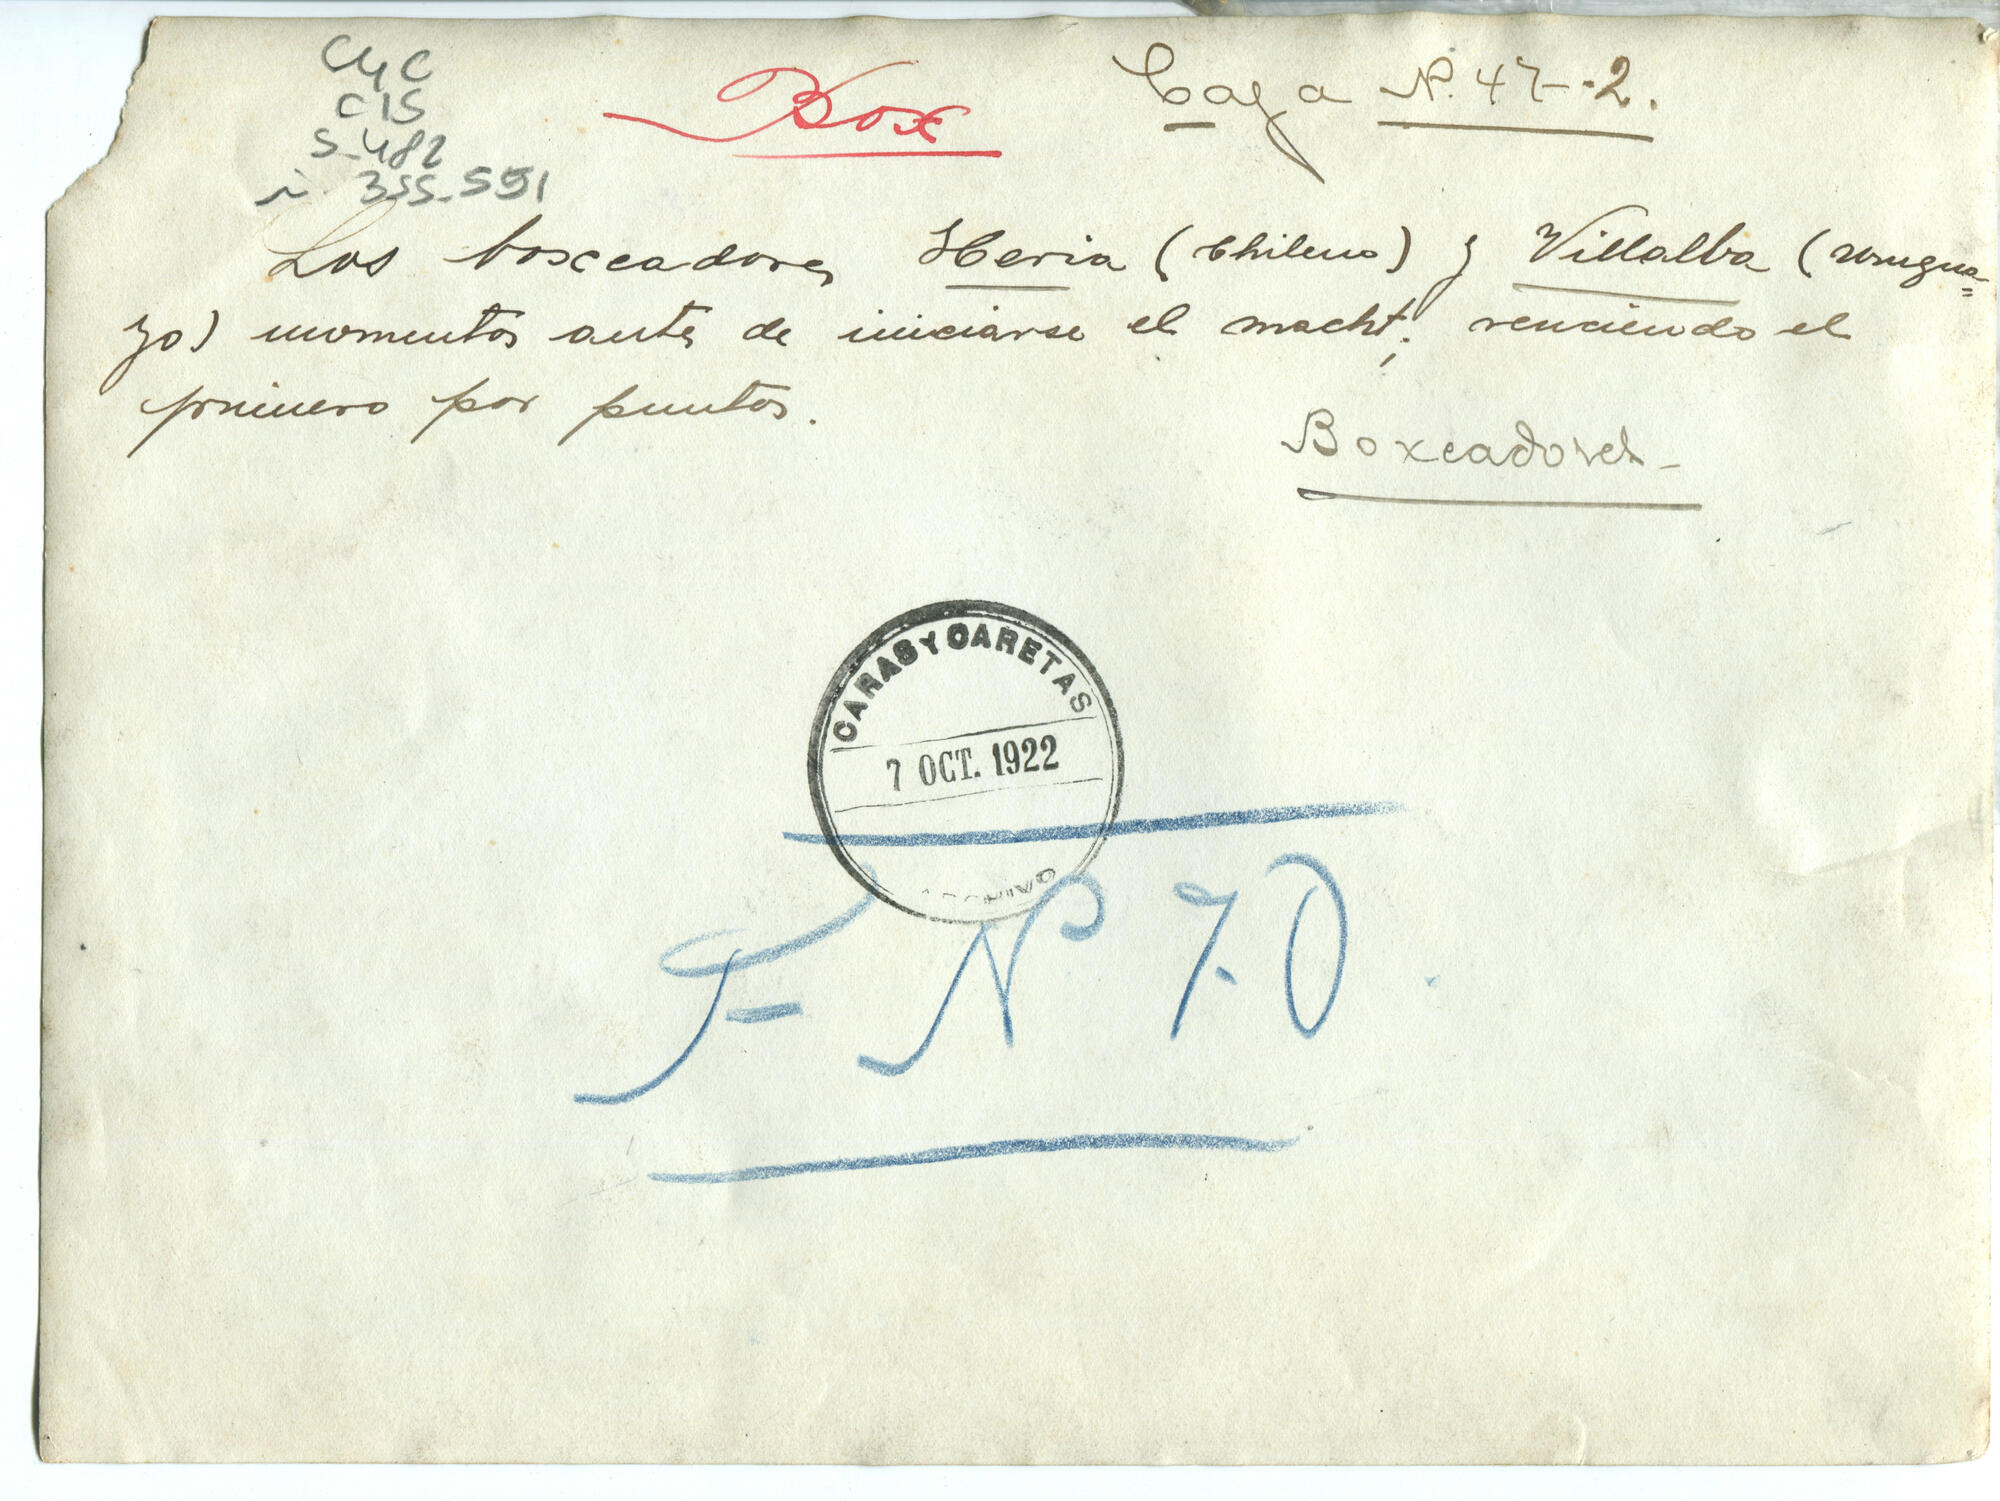 CyC
C15
S-482
i. 355.551
Box
Caja Nº. 47-2.
Los boxeadores Heria (chileno) y Villalba (urugua=
yo) momentos antes de iniciarse el macht; venciendo el
primero por puntos.
Boxeadores-
CARAS Y CARETAS
7 OCT. 1922
F- Nº 70.